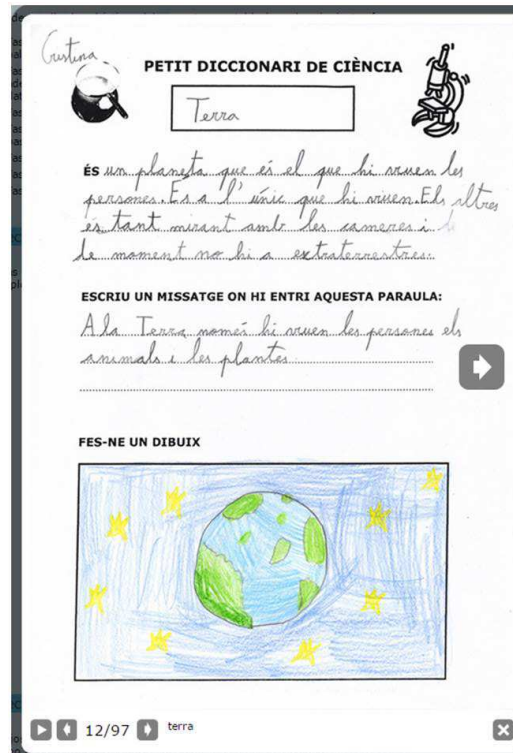 Cristina
PETIT DICCIONARI DE CIÈNCIA
Terra
ÉS un planeta que és el que hi viuen les
persones. És a l'únic que hi viuen. Els altres
es tant mirant amb les cameres i de
de moment no hi a extraterrestres.
ESCRIU UN MISSATGE ON HI ENTRI AQUESTA PARAULA:
A la Terra només hi viuen les persones els
animals i les plantes.
FES-NE UN DIBUIX
12/97 terra